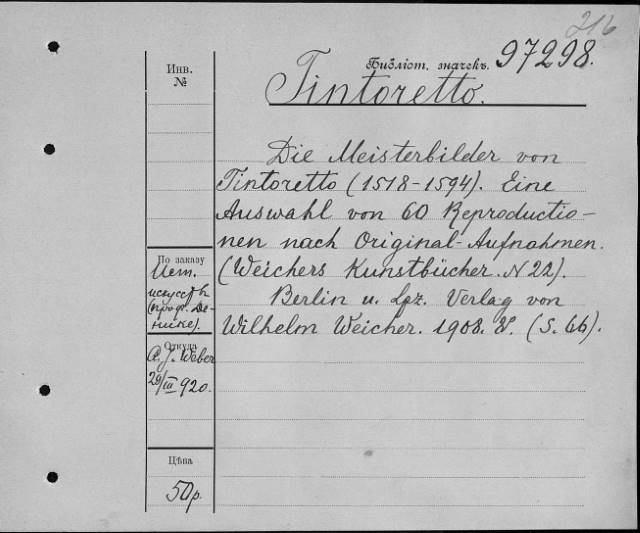 216
Библіот. значекъ. 97298.
Инв.
№
Tintoretto.
Die Meisterbilder von
Tintoretto (1518-1594). Eine
Auswahl von 60 Reproductio-
nen nach Original-Aufnahmen.
(Weichers Kunstbücher. N 22).
Berlin u. Lpz. Verlag von
Wilhelm Weicher. 1908. 8°. (S. 66).
По заказу
Ист.
искусств
(проф. Де-
нике).
Откуда
A. J. Weber
29/III 920.
Цѣна
50 р.